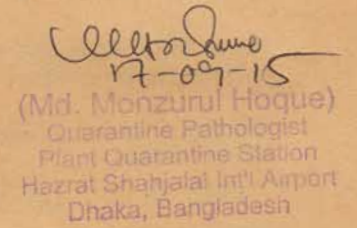 17-09-15
(Md. Monzurul Hoque)
Quarantine Pathologist
Plant Quarantine Station
Hazrat Shahjalal Int'l Airport
Dhaka, Bangladesh